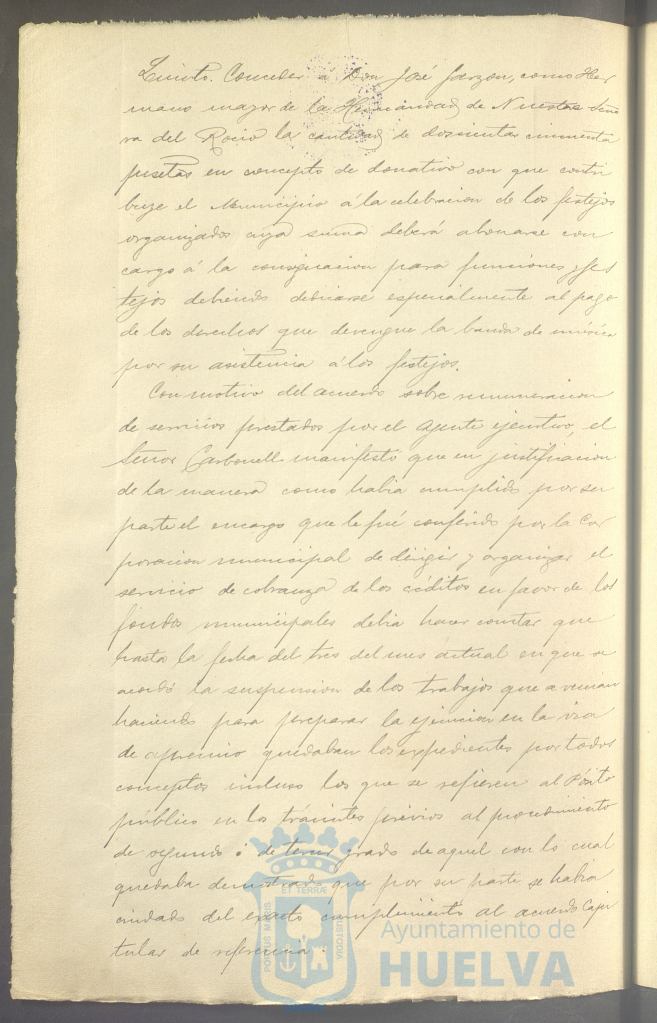 Quinto. Conceder á Don José Garzon, como Her
mano mayor de la Hermandad de Nuestra Seño
ra del Rocio la cantidad de doscientas cincuenta
pesetas en concepto de donativo con que contri
buye el Municipio á la celebracion de los festejos
organizados cuya suma deberá abonarse con
cargo á la consignacion para funciones y fes
tejos debiendo dedicarse especialmente al pago
de los derechos que devengue la banda de música
por su asistencia á los festejos.
Con motivo del acuerdo sobre remuneracion
de servicios prestados por el agente ejecutivo, el
Señor Carbonell manifestó que en justificacion
de la manera como habia cumplido por su
parte el encargo que le fué conferido por la Cor
poracion municipal de dirigir y organizar el
servicio de cobranza de los créditos en favor de los
fondos municipales debia hacer constar que
hasta la fecha del tres del mes actual en que se
acordó la suspension de los trabajos que se venian
haciendo para preparar la ejecucion en la via
de apremio quedaban los expedientes por todos
conceptos incluso los que se refieren al Pósito
público en los trámites previos al procedimiento
de segundo ó de tercer grado de aquel con lo cual
quedaba demostrado que por su parte se habia
cuidado del exacto cumplimiento al acuerdo Capi
tular de referencia.
PORTUS MARIS
ET TERRÆ
CUSTODIA
Ayuntamiento de
HUELVA